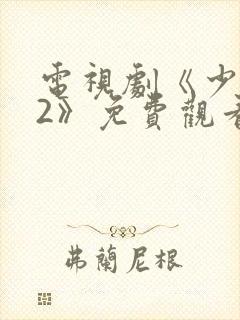 電視劇《少
2》免費觀看
弗蘭尼根